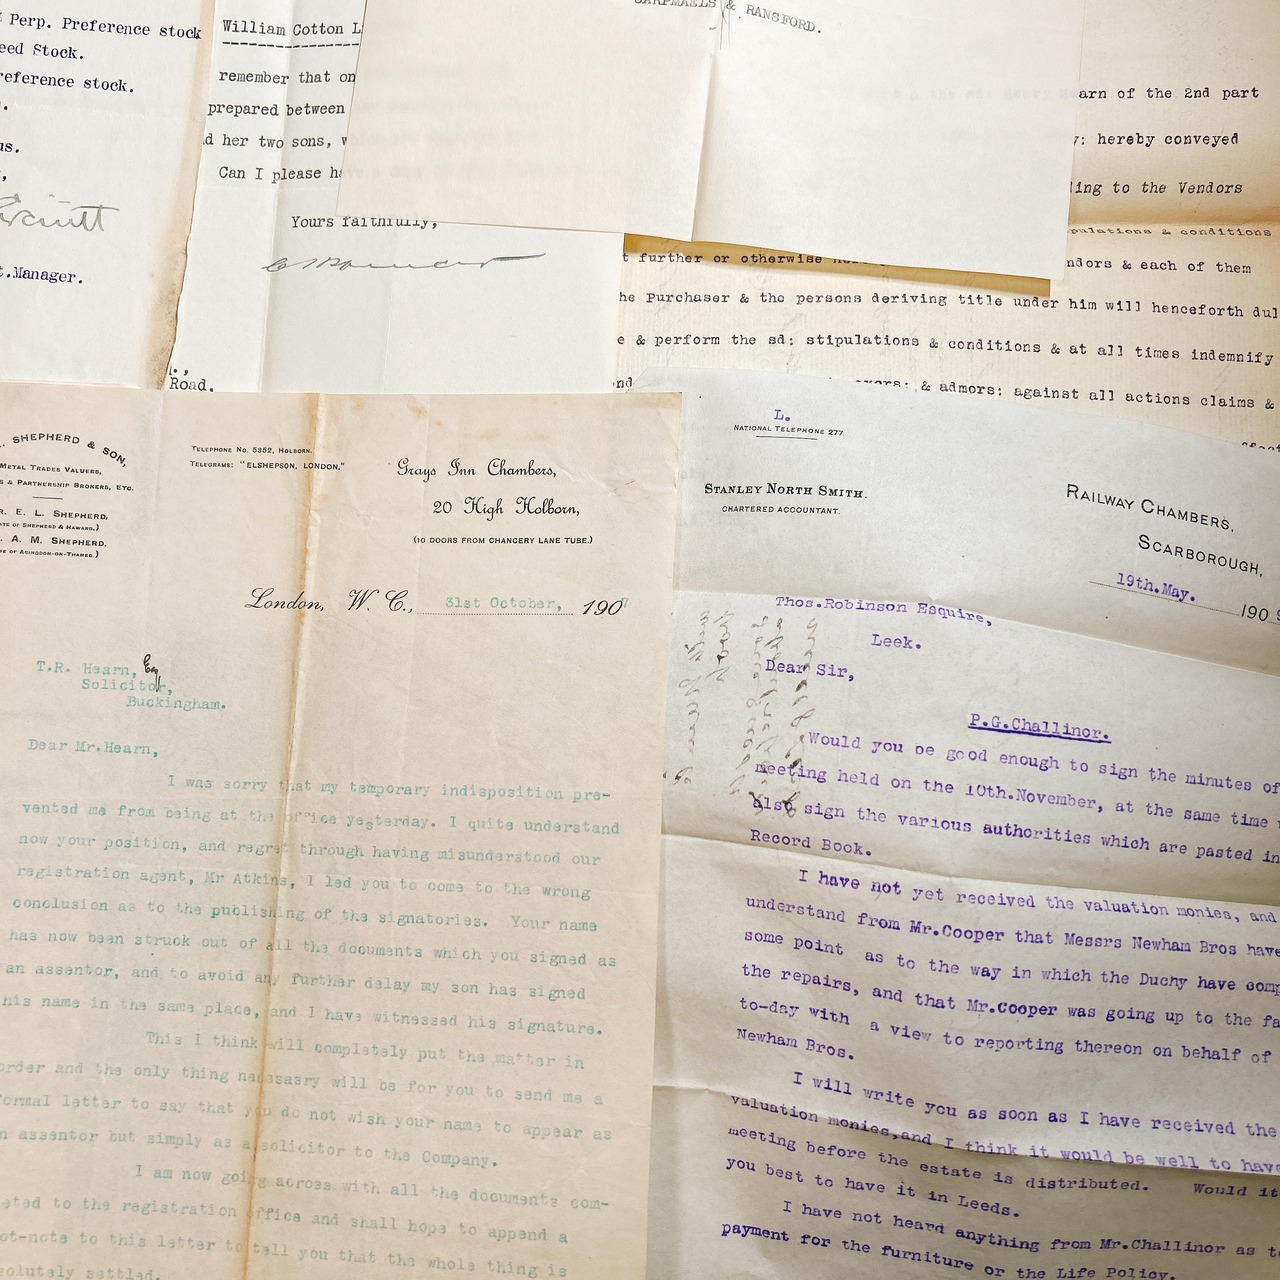 Perp. Preference stock
eed Stock.
reference stock.
us.
t.Manager.
William Cotton L
remember that on
prepared between
d her two sons, w
Can I please ha
Yours faithfully,
Road.
& RANSFORD.
arn of the 2nd part
y: hereby conveyed
ling to the Vendors
pulations & conditions
t further or otherwise
ndors & each of them
he Purchaser & the persons deriving title under him will henceforth dul
e & perform the sd: stipulations & conditions & at all times indemnify
nd
& admors: against all actions claims &
. SHEPHERD & SON,
METAL TRADES VALUERS,
S & PARTNERSHIP BROKERS, ETC.
R. E. L. SHEPHERD,
(LATE OF SHEPHERD & HAWARD.)
. A. M. SHEPHERD.
(LATE OF ABINGDON-ON-THAMES.)
TELEPHONE No. 5352, HOLBORN.
TELEGRAMS: "ELSHEPSON, LONDON."
Grays Inn Chambers,
20 High Holborn,
(10 DOORS FROM CHANCERY LANE TUBE.)
London, W. C., 31st October, 1907
T.R. Hearn, Esq
Solicitor,
Buckingham.
Dear Mr.Hearn,
I was sorry that my temporary indisposition pre-
vented me from being at the office yesterday. I quite understand
now your position, and regret through having misunderstood our
registration agent, Mr Atkins, I led you to come to the wrong
conclusion as to the publishing of the signatories. Your name
has now been struck out of all the documents which you signed as
an assentor, and to avoid any further delay my son has signed
his name in the same place, and I have witnessed his signature.
This I think will completely put the matter in
order and the only thing necessasry will be for you to send me a
formal letter to say that you do not wish your name to appear as
n assentor but simply as a solicitor to the Company.
I am now going across with all the documents com-
eted to the registration office and shall hope to append a
ot-note to this letter to tell you that the whole thing is
solutely settled.
L.
NATIONAL TELEPHONE 277.
STANLEY NORTH SMITH.
CHARTERED ACCOUNTANT.
RAILWAY CHAMBERS,
SCARBOROUGH,
19th.May. 190
Thos.Robinson Esquire,
Leek.
Dear Sir,
P.G.Challinor.
Would you be good enough to sign the minutes of
meeting held on the 10th.November, at the same time
also sign the various authorities which are pasted in
Record Book.
I have not yet received the valuation monies, and
understand from Mr.Cooper that Messrs Newham Bros have
some point as to the way in which the Duchy have comp
the repairs, and that Mr.Cooper was going up to the fa
to-day with a view to reporting thereon on behalf of
Newham Bros.
I will write you as soon as I have received the
valuation monies,and I think it would be well to have
meeting before the estate is distributed. Would it
you best to have it in Leeds.
I have not heard anything from Mr.Challinor as to
payment for the furniture or the Life Policy.